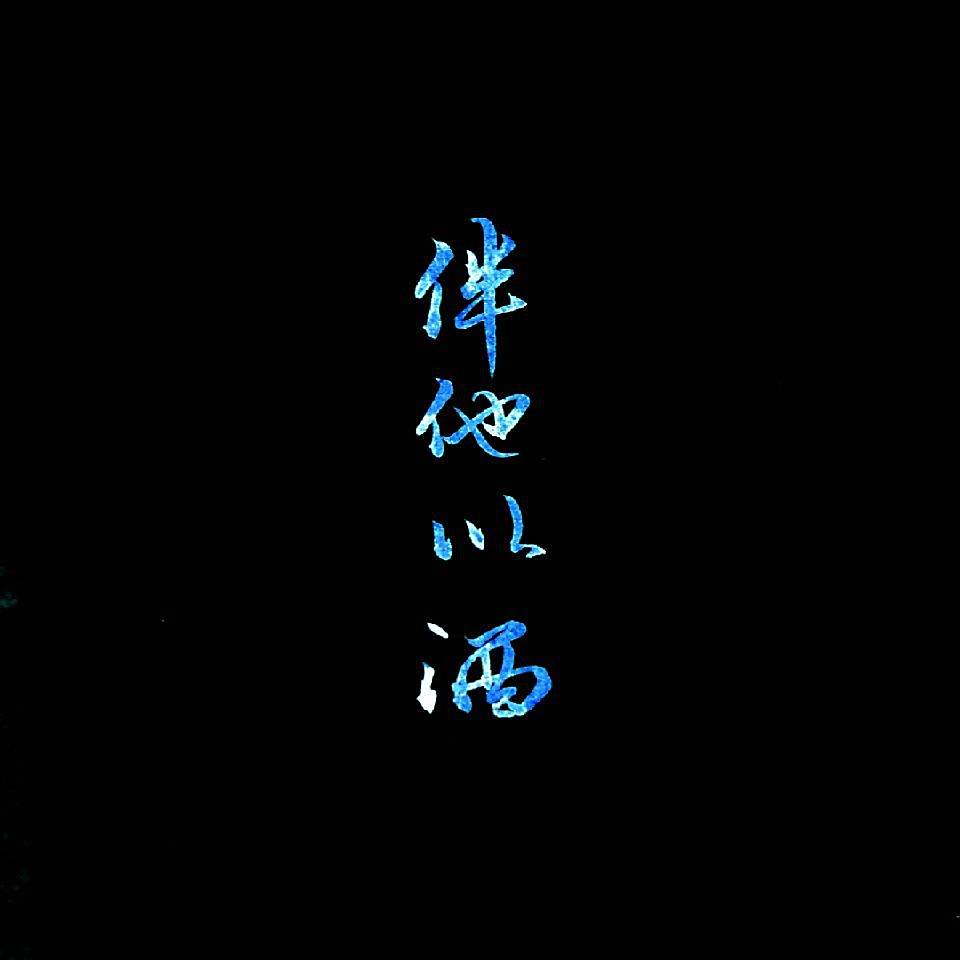 伴他以酒